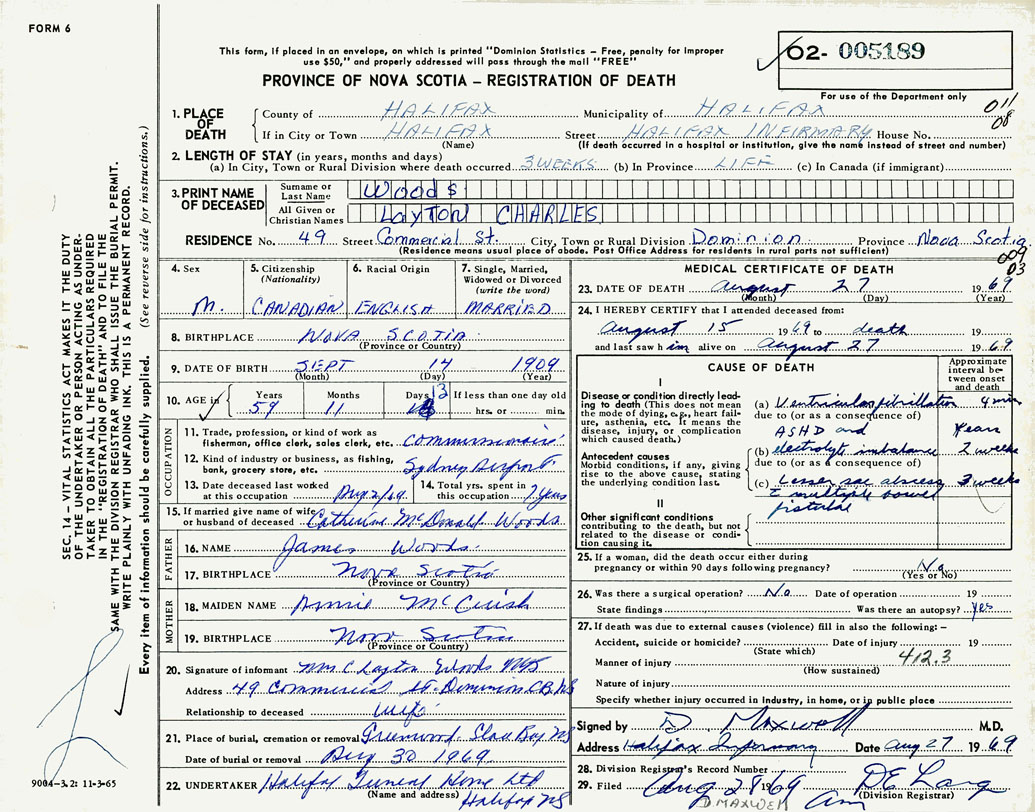 FORM 6
This form, if placed in an envelope, on which is printed "Dominion Statistics – Free, penalty for improper
use $50," and properly addressed will pass through the mail "FREE"
PROVINCE OF NOVA SCOTIA – REGISTRATION OF DEATH
02- 005189
For use of the Department only
011
08
1. PLACE OF DEATH
County of HALIFAX Municipality of HALIFAX
If in City or Town HALIFAX Street HALIFAX INFIRMARY House No.
(Name) (If death occurred in a hospital or institution, give the name instead of street and number)
2. LENGTH OF STAY (in years, months and days)
(a) In City, Town or Rural Division where death occurred 3 WEEKS (b) In Province LIFE (c) In Canada (if immigrant)
3. PRINT NAME OF DECEASED
Surname or Last Name Woods
All Given or Christian Names LayTON CHARLES
RESIDENCE No. 49 Street Commercial St. City, Town or Rural Division Dominion Province Nova Scotia
(Residence means usual place of abode. Post Office Address for residents in rural parts not sufficient)
009
03
4. Sex M.
5. Citizenship (Nationality) CANADIAN
6. Racial Origin ENGLISH
7. Single, Married, Widowed or Divorced (write the word) MARRIED
8. BIRTHPLACE NOVA SCOTIA
(Province or Country)
9. DATE OF BIRTH SEPT 14 1909
(Month) (Day) (Year)
10. AGE in Years 59 Months 11 Days 13 If less than one day old
hrs. or min.
OCCUPATION
11. Trade, profession, or kind of work as
fisherman, office clerk, sales clerk, etc. Commissionaire
12. Kind of industry or business, as fishing,
bank, grocery store, etc. Sydney Airport
13. Date deceased last worked
at this occupation Aug 2/69
14. Total yrs. spent in
this occupation 7 Years
15. If married give name of wife
or husband of deceased Catherine McDonald Woods
FATHER
16. NAME James Woods
17. BIRTHPLACE Nova Scotia
(Province or Country)
MOTHER
18. MAIDEN NAME Annie McCuish
19. BIRTHPLACE Nova Scotia
(Province or Country)
20. Signature of informant Mrs. C Layton Woods
Address 49 Commercial St. Dominion C.B. NS
Relationship to deceased wife
21. Place of burial, cremation or removal Greenwood Glace Bay NS
Date of burial or removal Aug 30 1969
22. UNDERTAKER Halifax Funeral Home Ltd
(Name and address) Halifax NS
MEDICAL CERTIFICATE OF DEATH
23. DATE OF DEATH August 27 1969
(Month) (Day) (Year)
24. I HEREBY CERTIFY that I attended deceased from:
August 15 1969 to death 19
and last saw him alive on August 27 1969
CAUSE OF DEATH
Approximate interval between onset and death
I
Disease or condition directly leading to death (This does not mean the mode of dying, e.g., heart failure, asthenia, etc. It means the disease, injury, or complication which caused death.)
(a) Ventricular fibrillation 4 min
due to (or as a consequence of)
ASHD and years
Antecedent causes
Morbid conditions, if any, giving rise to the above cause, stating the underlying condition last.
(b) electrolyte imbalance 2 weeks
due to (or as a consequence of)
(c) Lesser sac abscess 3 weeks
c multiple bowel
fistulae
II
Other significant conditions
contributing to the death, but not related to the disease or condition causing it.
25. If a woman, did the death occur either during
pregnancy or within 90 days following pregnancy? No
(Yes or No)
26. Was there a surgical operation? No Date of operation 19
State findings Was there an autopsy? Yes
27. If death was due to external causes (violence) fill in also the following: –
Accident, suicide or homicide? Date of injury 19
(State which) 412.3
Manner of injury
(How sustained)
Nature of injury
Specify whether injury occurred in industry, in home, or in public place
Signed by D. Maxwell M.D.
Address Halifax Infirmary Date Aug 27 1969
28. Division Registrar's Record Number
29. Filed Aug 28 1969 DE Lang
(Division Registrar)
D MAXWELL
SEC. 14 – VITAL STATISTICS ACT MAKES IT THE DUTY
OF THE UNDERTAKER OR PERSON ACTING AS UNDER-
TAKER TO OBTAIN ALL THE PARTICULARS REQUIRED
IN THE "REGISTRATION OF DEATH" AND TO FILE THE
SAME WITH THE DIVISION REGISTRAR WHO SHALL ISSUE THE BURIAL PERMIT.
WRITE PLAINLY WITH UNFADING INK. THIS IS A PERMANENT RECORD.
Every item of information should be carefully supplied. (See reverse side for instructions.)
9004–3.2: 11-3-65